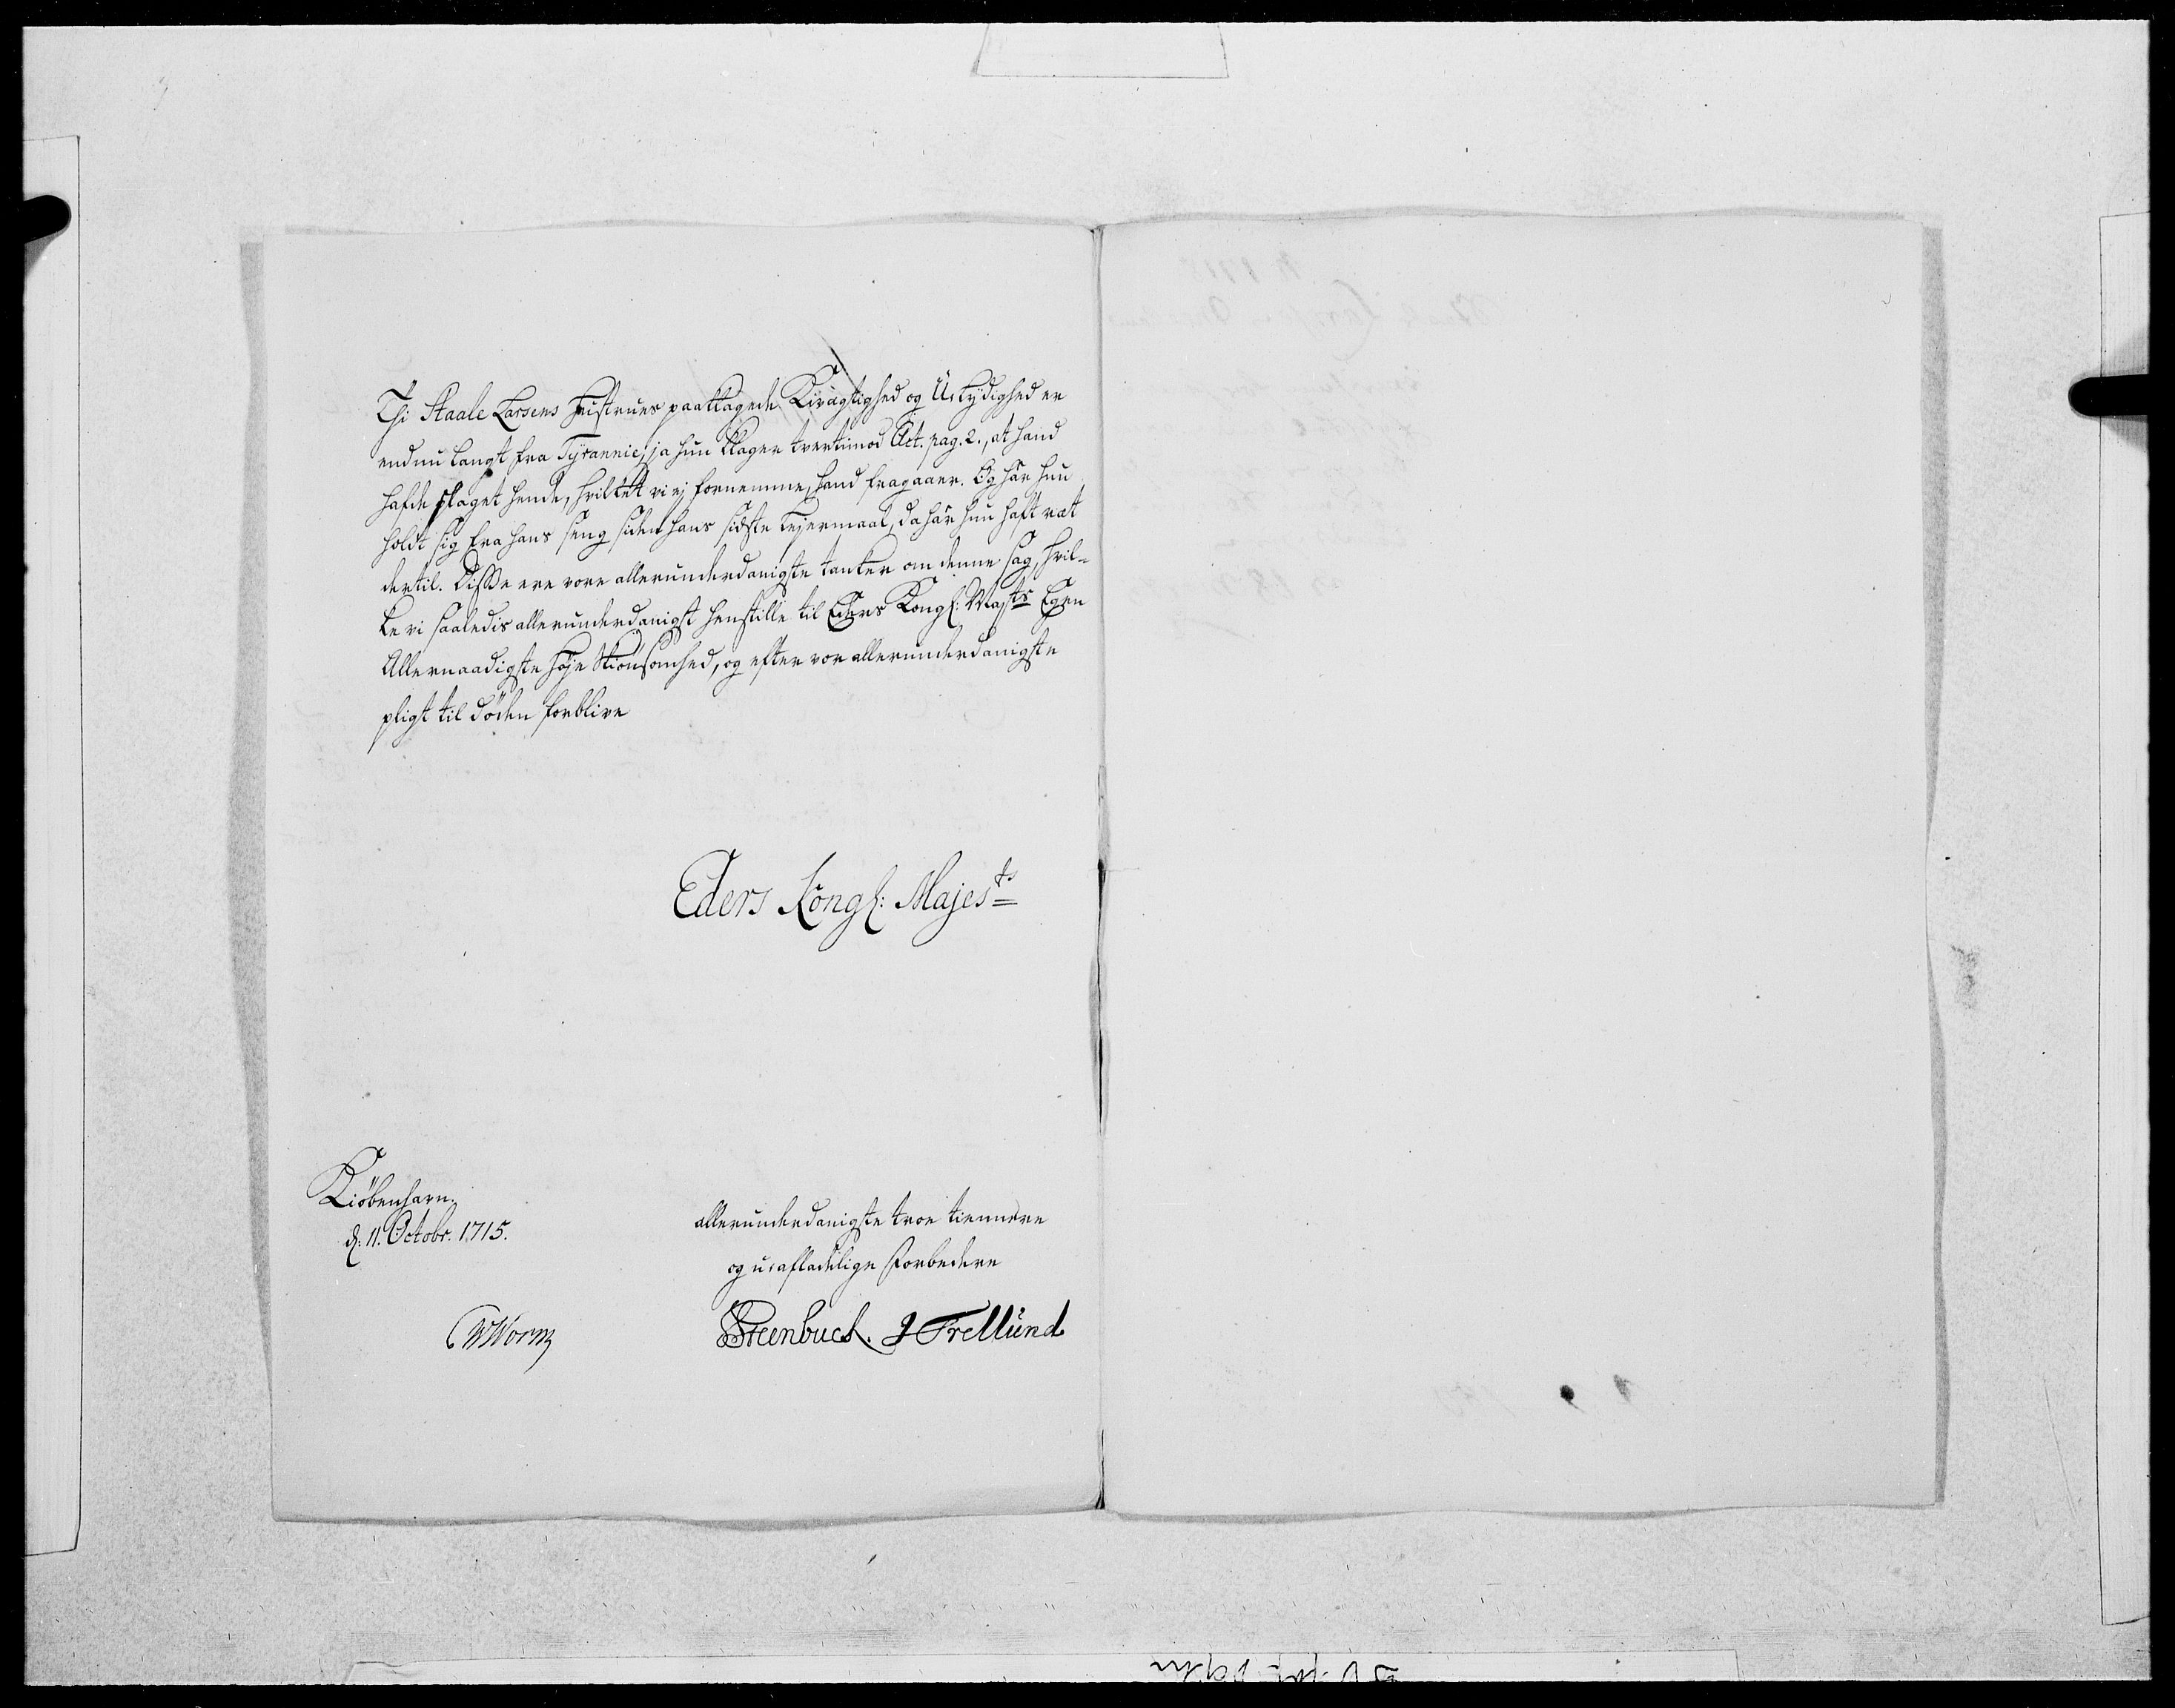 Thi Staale Larsens Hustrues paaklagede Kivagtighed og U-lydighed er
endnu langt fra Tyrannie; ja hun klager tvertimod Act. pag. 2., at hand
hafde slaget hende, hvilket vi ej fornemme, hand fragaaer. Og har hun
holdt sig fra hans seng siden hans sidste Lejermaal, da har hun haft ræt
dertil. Disse ere vore allerunderdanigste tanker om denne sag, hvil-
ke vi saaledis allerunderdanigst henstille til Eders Kongl: Majts Egen
Allernaadigste høje Skiønsomhed, og efter vor allerunderdanigste
pligt til døden forblive
Eders Kongl: Majests
Kiøbenhavn.
d: 11. Octobr. 1715.
allerunderdanigste troe tiennere
og u-afladelige forbedere
CWWorm
SSteenbuch. J Trellund